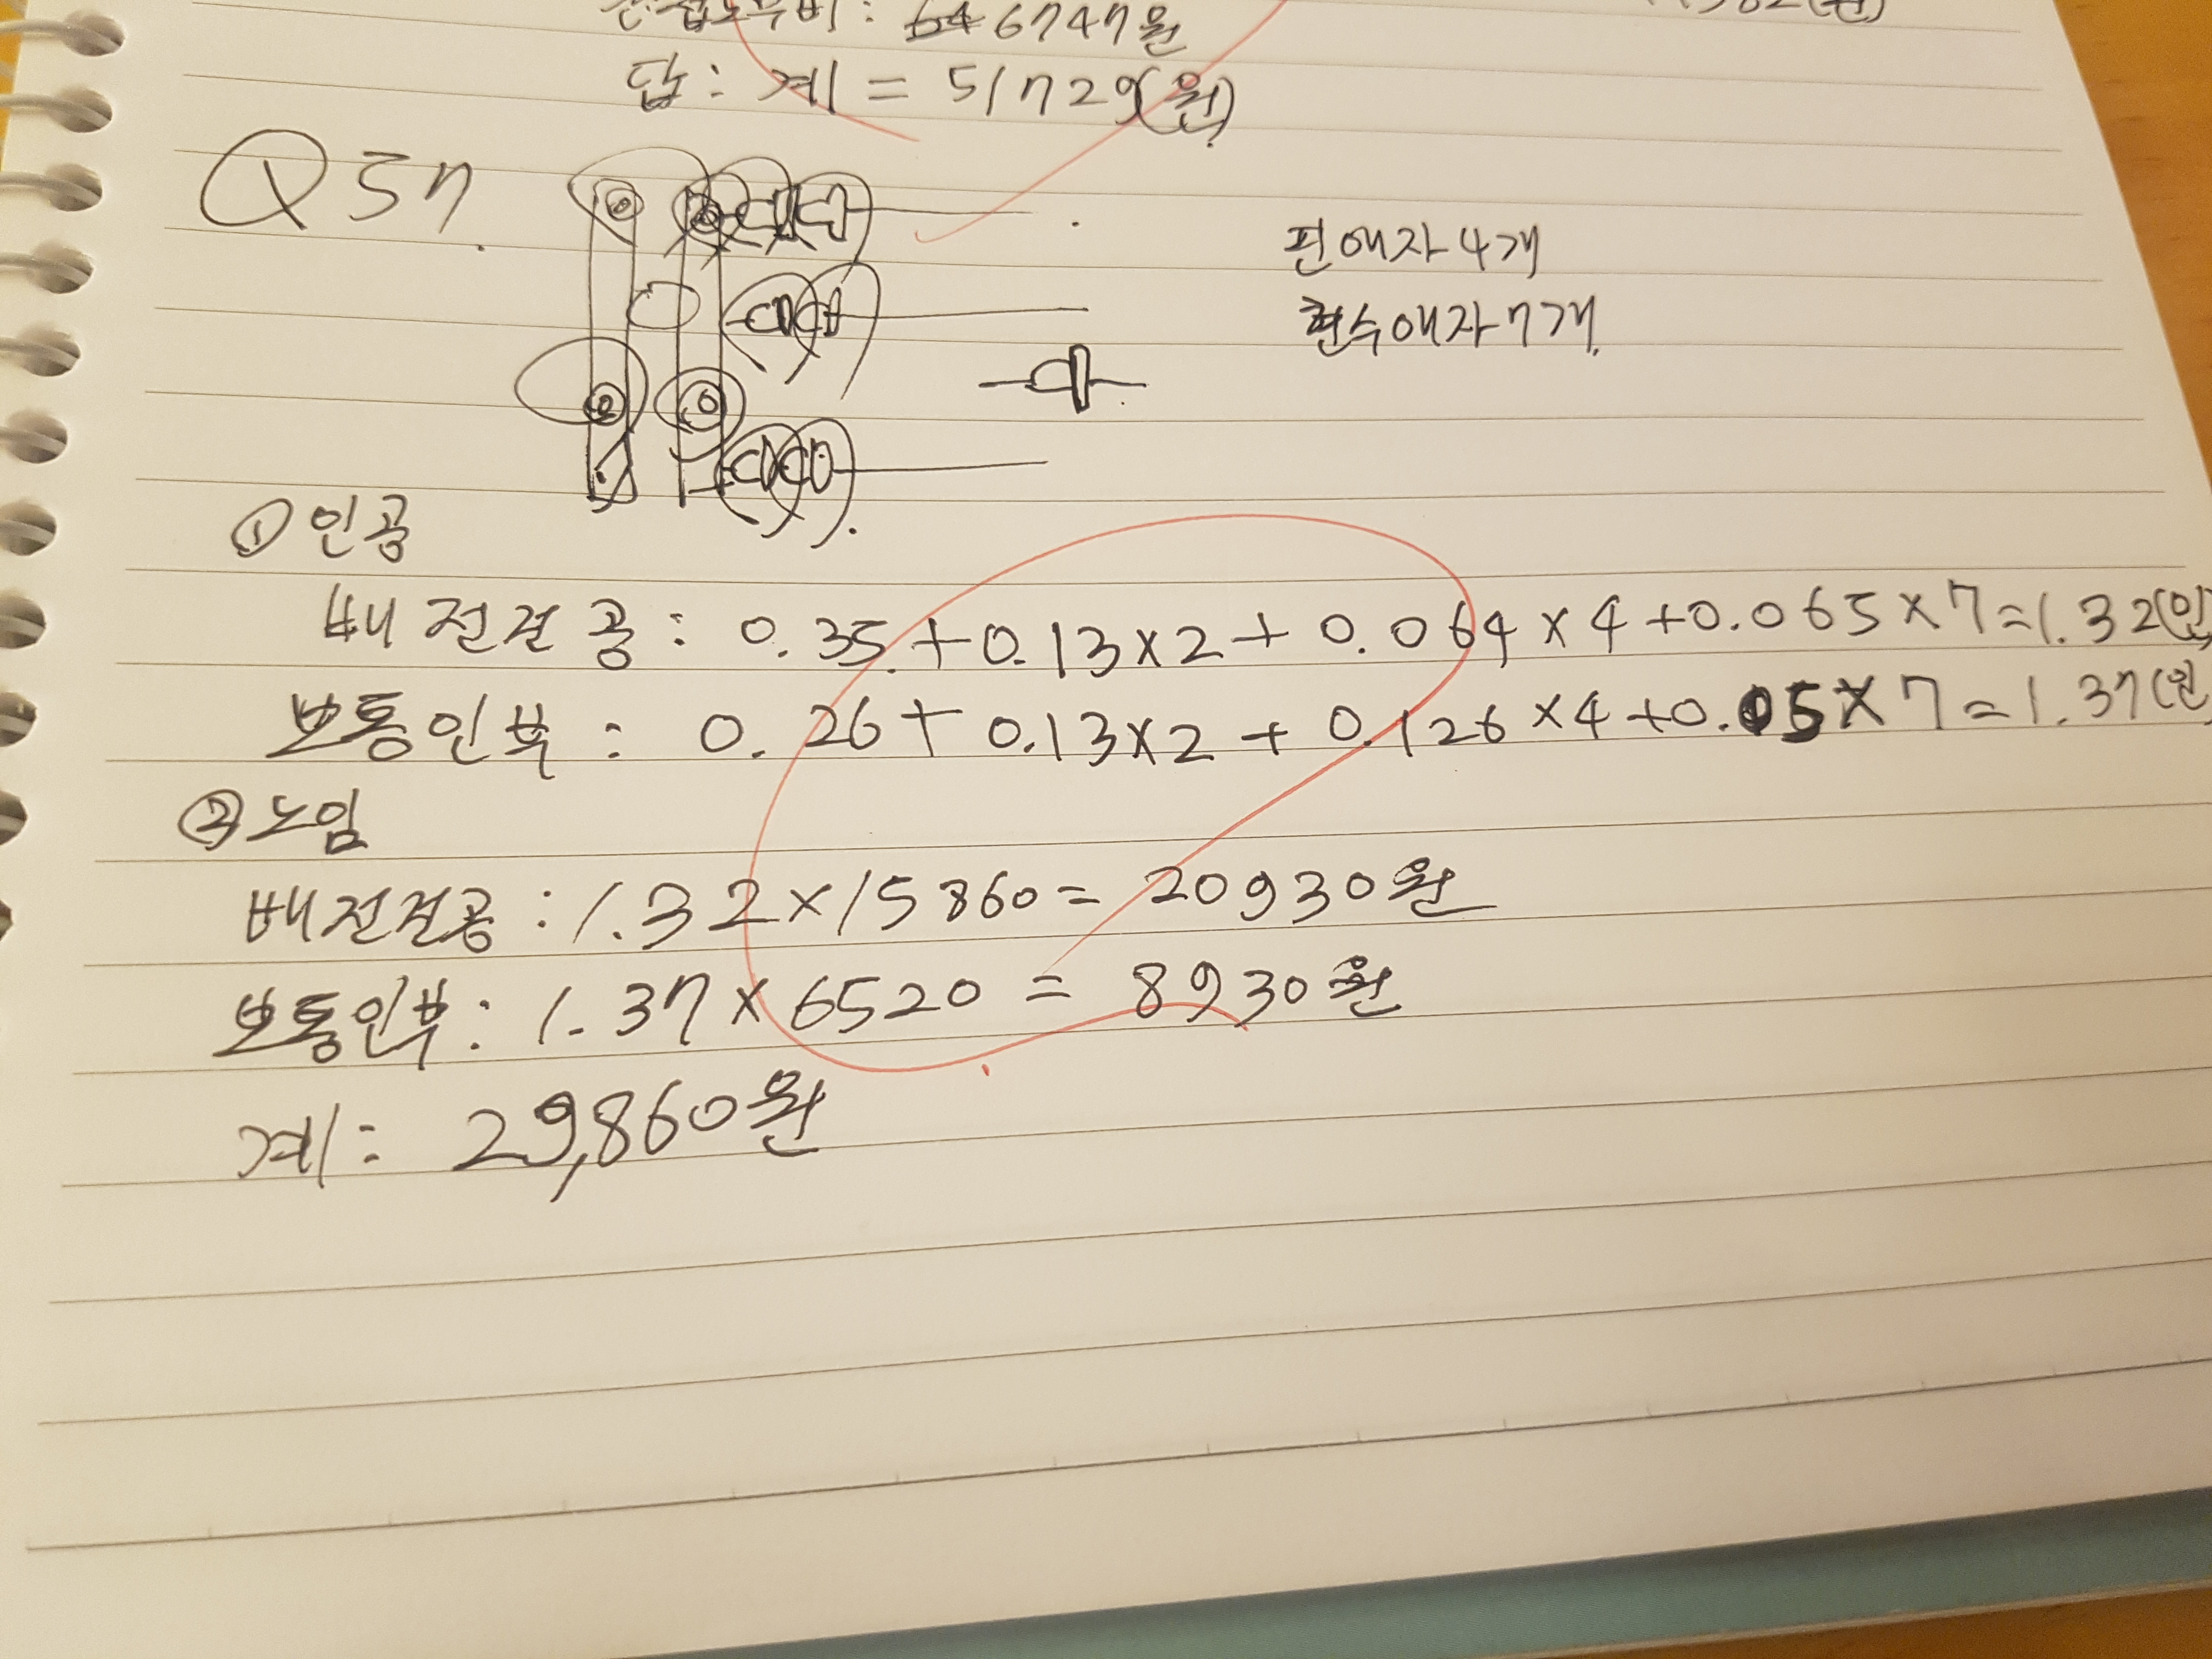 접노무비: 646747원
답: 계 = 51729(원)
Q57.
핀애자4개
현수애자7개.
①인공
배전전공: 0.35+0.13×2+0.064×4+0.065×7=1.32(인)
보통인부: 0.26+0.13×2+0.126×4+0.05×7=1.37(인)
②노임
배전전공: 1.32×15860= 20930원
보통인부: 1.37×6520 = 8930원
계: 29,860원